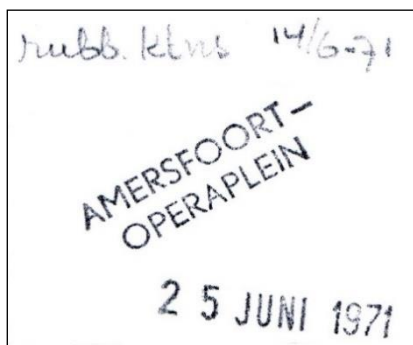 rubb. klns 14/6-71
AMERSFOORT-
OPERAPLEIN
25 JUNI 1971